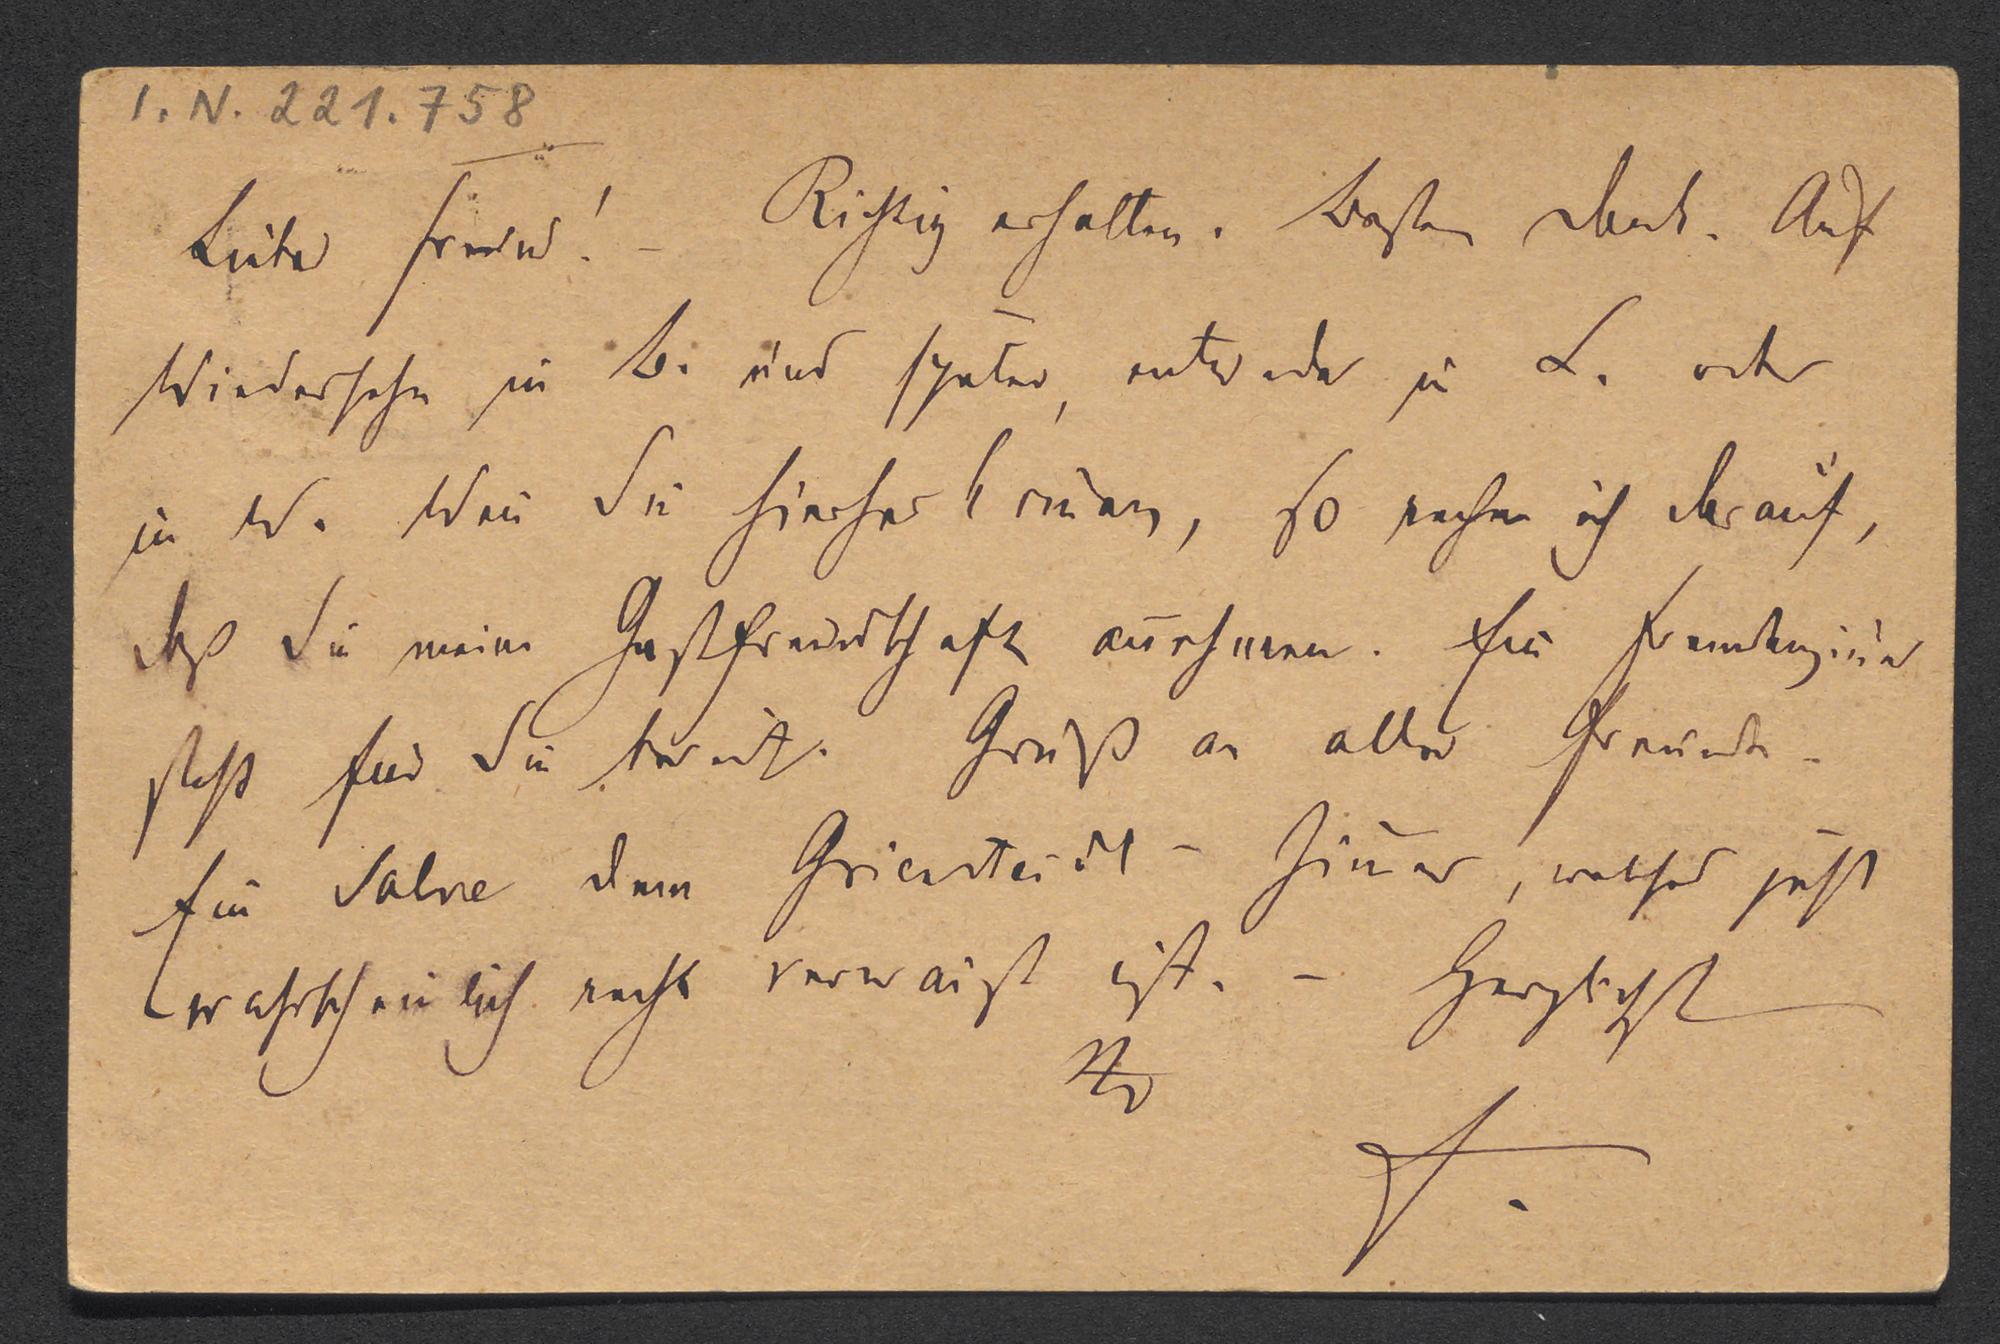 I. N. 221.758
Lieber Freund! – Richtig erhalten. Besten Dank. Auf
Wiedersehn in B. und später, entweder in L. oder
in W. Wenn Du hierher kommen, so rechne ich darauf,
daß Sie meine Gastfreundschaft annehmen. Ein Fremdenzimmer
steht für Sie bereit. Gruß an alle Freunde –
Ein Salve dem Griensteidl – Zimmer, welches jetzt
wahrscheinlich recht verwaist ist. – Herzlichst
Ihr
F.